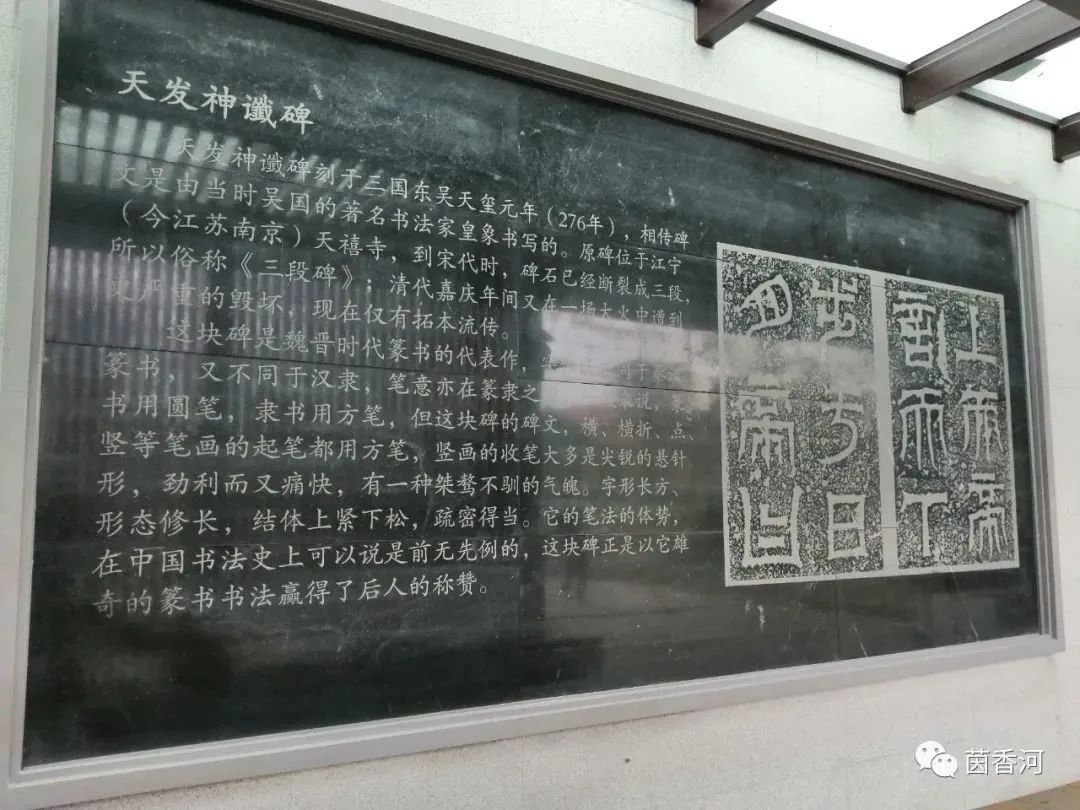 天发神谶碑
天发神谶碑刻于三国东吴天玺元年（276年），相传碑
文是由当时吴国的著名书法家皇象书写的。原碑位于江宁
（今江苏南京）天禧寺，到宋代时，碑石已经断裂成三段，
所以俗称《三段碑》；清代嘉庆年间又在一场大火中遭到
更严重的毁坏，现在仅有拓本流传。
这块碑是魏晋时代篆书的代表作，
篆书，又不同于汉隶，笔意亦在篆隶之
书用圆笔，隶书用方笔，但这块碑的碑文，横、横折、点、
竖等笔画的起笔都用方笔，竖画的收笔大多是尖锐的悬针
形，劲利而又痛快，有一种桀骜不驯的气魄。字形长方、
形态修长，结体上紧下松，疏密得当。它的笔法的体势，
在中国书法史上可以说是前无先例的，这块碑正是以它雄
奇的篆书书法赢得了后人的称赞。
上天帝
言天下
步于日
月帝曰
茵香河